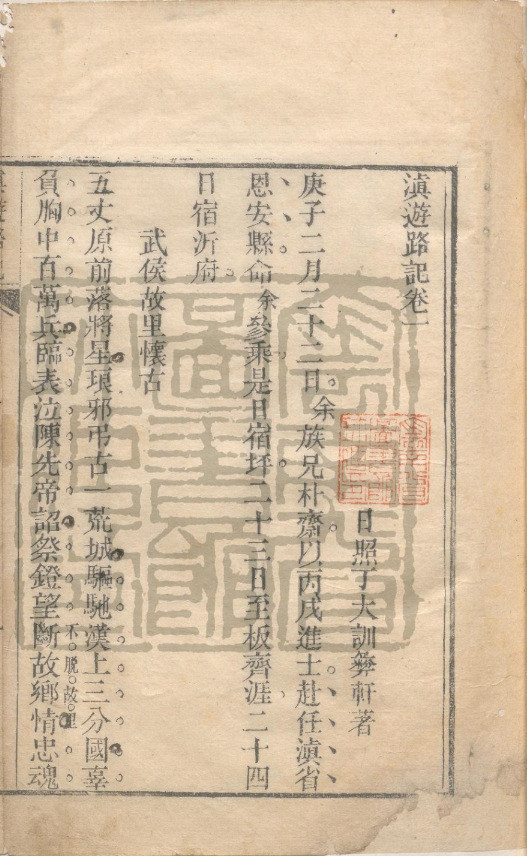 滇遊路記卷一
日照丁大訓彝軒著
庚子二月二十二日余族兄朴齋以丙戌進士赴任滇省
恩安縣命余參乘是日宿坪二十三日至板齊涯二十四
日宿沂府
武侯故里懷古
五丈原前落將星琅邪弔古一荒城驅馳漢上三分國辜
負胸中百萬兵臨表泣陳先帝詔祭鐙望斷故鄉情不脫故里忠魂